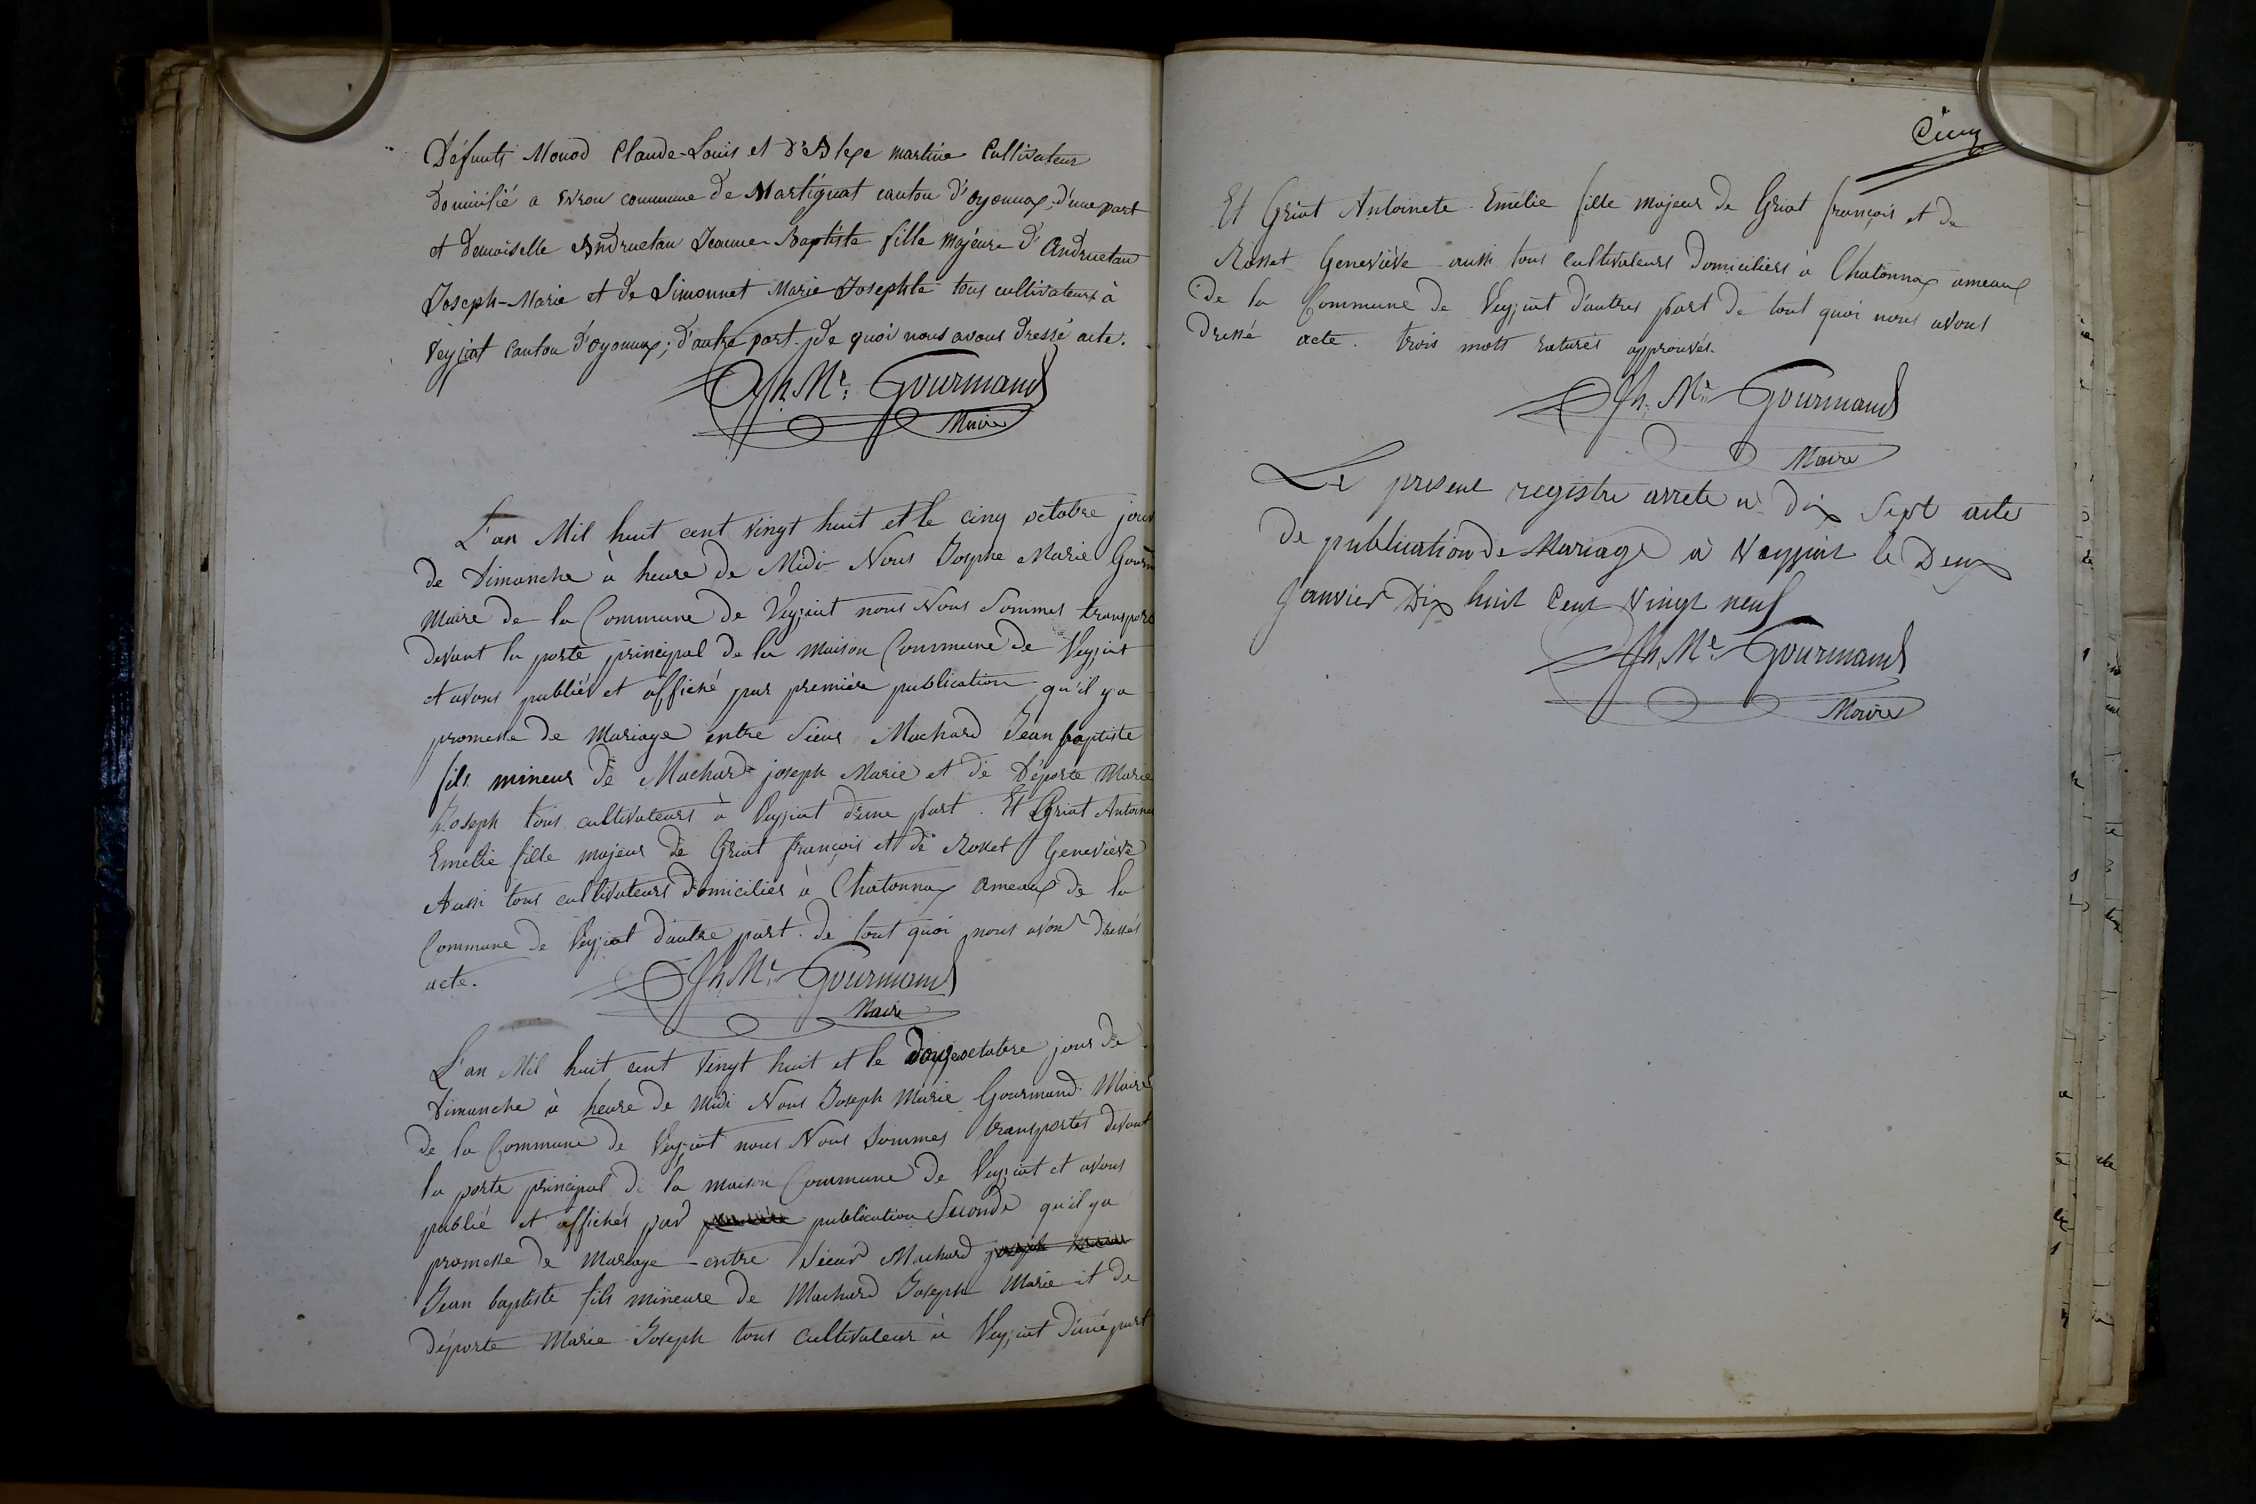 Défunts Monod Claude-Louis et d' martine Cultivateur
domicilié a commune de Martignat canton d'oyonnax, d'une part
et demoiselle Andruetan Jeanne-Baptiste fille majeure d'Andruetan
Joseph-Marie et de Simonnet Marie Josephte tous cultivateurs à
Veyziat Canton d'oyonnax; d'autre part. de quoi nous avons dressé acte.
Jh. Me. Gourmand
Maire
L'an Mil huit cent vingt huit et le cinq octobre jour
de Dimanche à heure de Midi Nous Josephe Marie Gourm
Maire de la Commune de Veyziat nous Nous Sommes transporté
devant la porte principal de la maison Commune de Veyziat
et avons publiés et affiché par première publication qu'il y a
promesse de Mariage entre Sieur Machard Jean baptiste
fils mineur de Machard joseph Marie et de Déporte Marie
Joseph tous cultivateurs à Veyziat d'une part. Et Griot Antoine
Emelie fille majeur de Griot françois et de Rosset Geneviève
Aussi tous cultivateurs domiciliés à Chatonnax ameaux de la
Commune de Veyziat d'autre part. de tout quoi nous avons dressés
acte.
Jh. Me. Gourmand
Maire
L'an Mil huit cent vingt huit et le douze octobre jour de
Dimanche à heure de Midi Nous Joseph Marie Gourmand Maire
de la Commune de Veyziat nous Nous Sommes transportés devant
la porte principal de la maison Commune de Veyziat et avons
publié et affichés par première publication Seconde qu'il y a
promesse de Mariage entre Sieur Machard joseph marie
Jean baptiste fils mineure de Machard Joseph Marie et de
déporte Marie Joseph tous Cultivateur à Veyziat d'une part
Cinq
Et Griot Antoinete Emélie fille majeur de Griot françois et de
Rosset Geneviève aussi tous cultivateurs domiciliers à Chatonnax ameaux
de la Commune de Veyziat d'autres part de tout quoi nous avons
dressé acte. trois mots raturés approuvés.
Jh. Me. Gourmand
Maire
Le present registre arrete a dix Sept actes
de publication de Mariage a Veyziat le Deux
Janvier Dix huit Cent Vingt neuf
Jh. Me. Gourmand
Maire